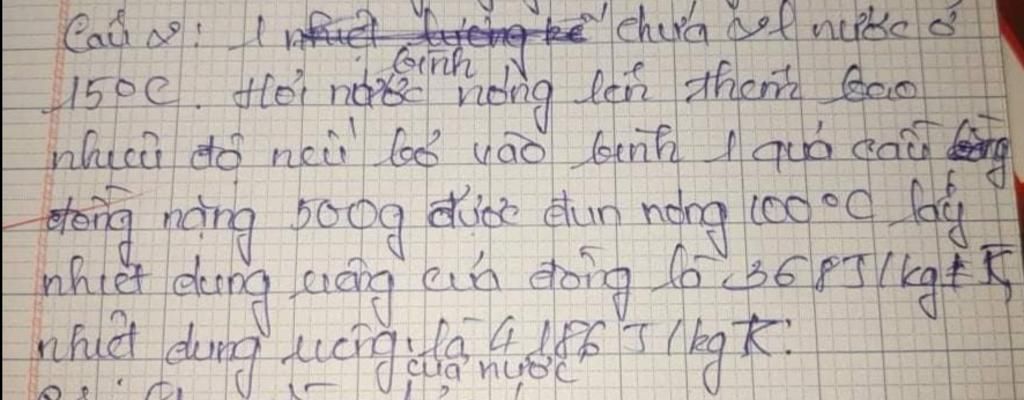 Câu 8: 1 bình chứa nước ở
15°C. Hỏi nước nóng lên thêm bao
nhiêu độ nếu bỏ vào bình 1 quả cầu bằng
đồng nặng 500g được đun nóng 100°C lấy
nhiệt dung riêng của đồng là 368J/kg K
nhiệt dung riêng của nước là 4186 J/kg K.